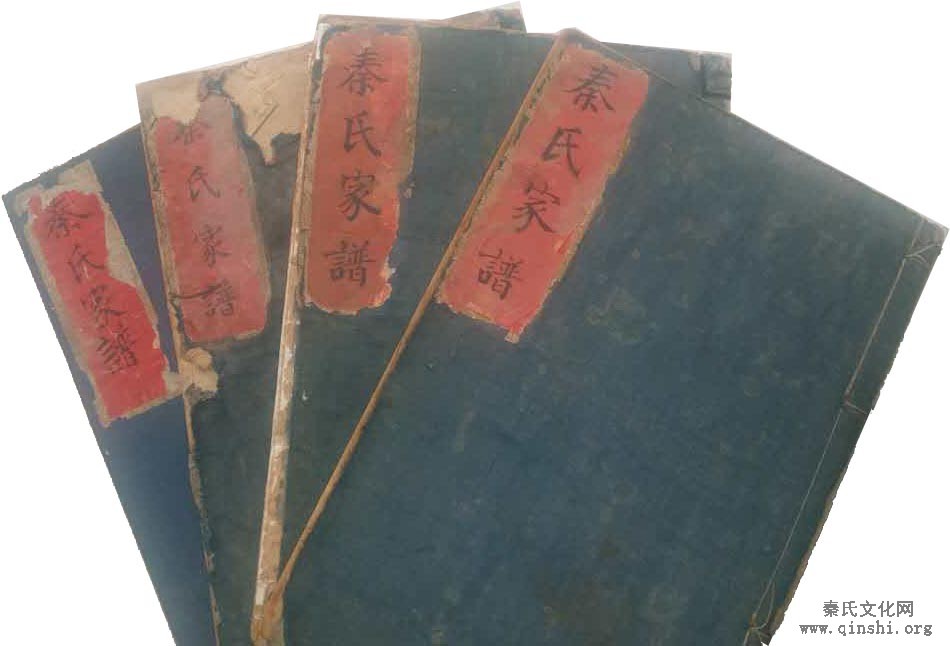 秦氏家譜
秦氏家譜
秦氏家譜
秦氏家譜
秦氏文化网
www.qinshi.org